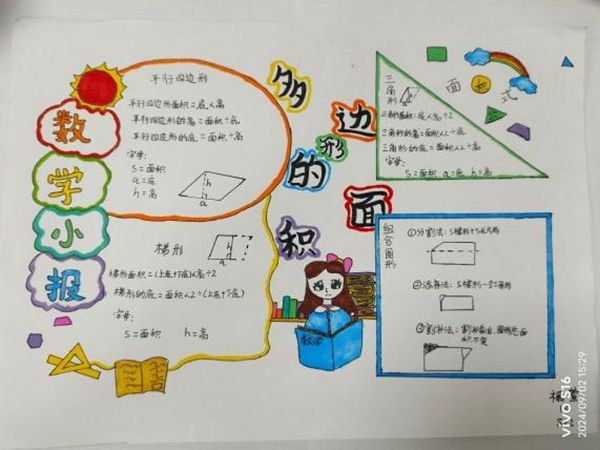 数学小报
多边形的面积
平行四边形
平行四边形面积=底×高
平行四边形的高=面积÷底
平行四边形的底=面积÷高
字母:
S=面积
a=底
h=高
h
a
梯形
梯形面积=(上底+下底)×高÷2
梯形的底=面积×2÷(上底+下底)
字母:
S=面积 h=高
h
a
数学
三角形
面 式
三角形面积=底×高÷2
三角形的高=面积×2÷底
三角形的底=面积×2÷高
字母:
S=面积 a=底 h=高
组合图形
①分割法:S梯形+S长方形
②添补法:S梯形-S三角形
③割补法:
积不变
vivo S16
2024/09/02 15:29